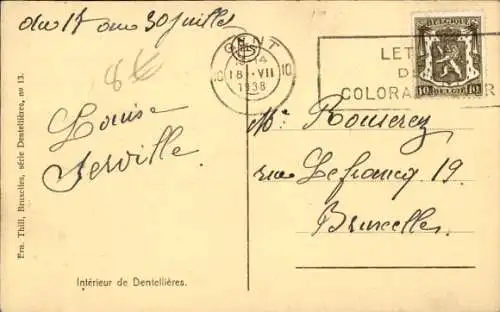 du 17 au 30 juillet
Louise
Serville.
Ern. Thill, Bruxelles, série Dentellières, no 13.
Intérieur de Dentellières.
GENT
13-14
18 -VII
1938
10 10
LET
D
COLORA ER
BELGIQUE
BELGIË
10 10
Mr Rouserez
rue Lefrancq 19
Bruxelles.